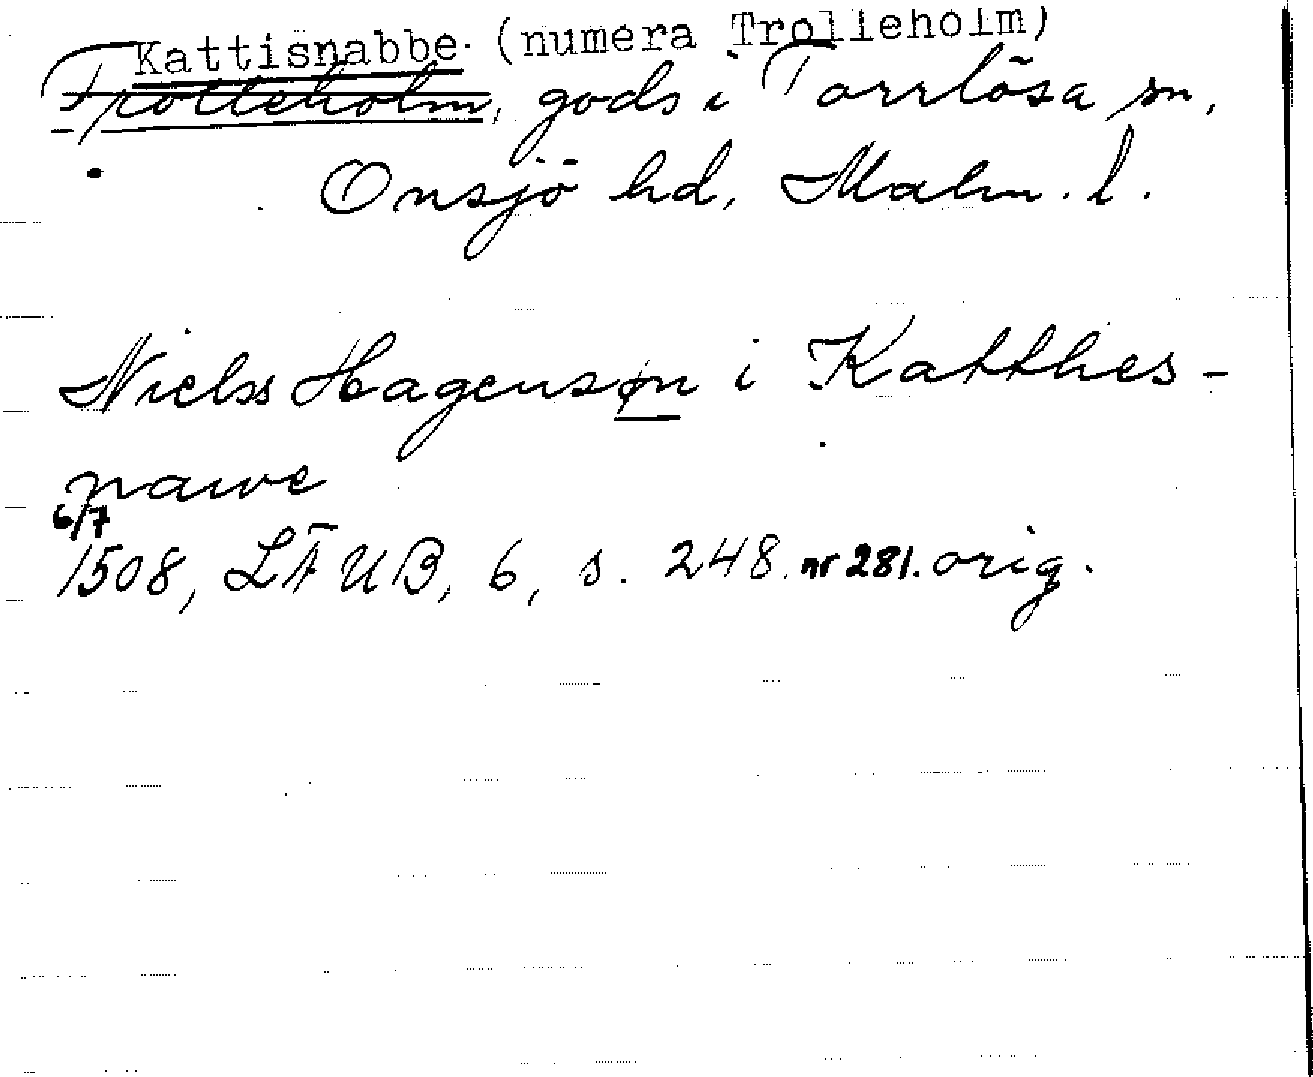 Kattisnabbe (numera Trolleholm)
Trolleholm, gods i Torrlösa sn,
Onsjö hd, Malm. l.
Nielss Hagensøn i Katthes-
nawe
6/7
1508, LÄUB, 6, s. 248. nr 281. orig.